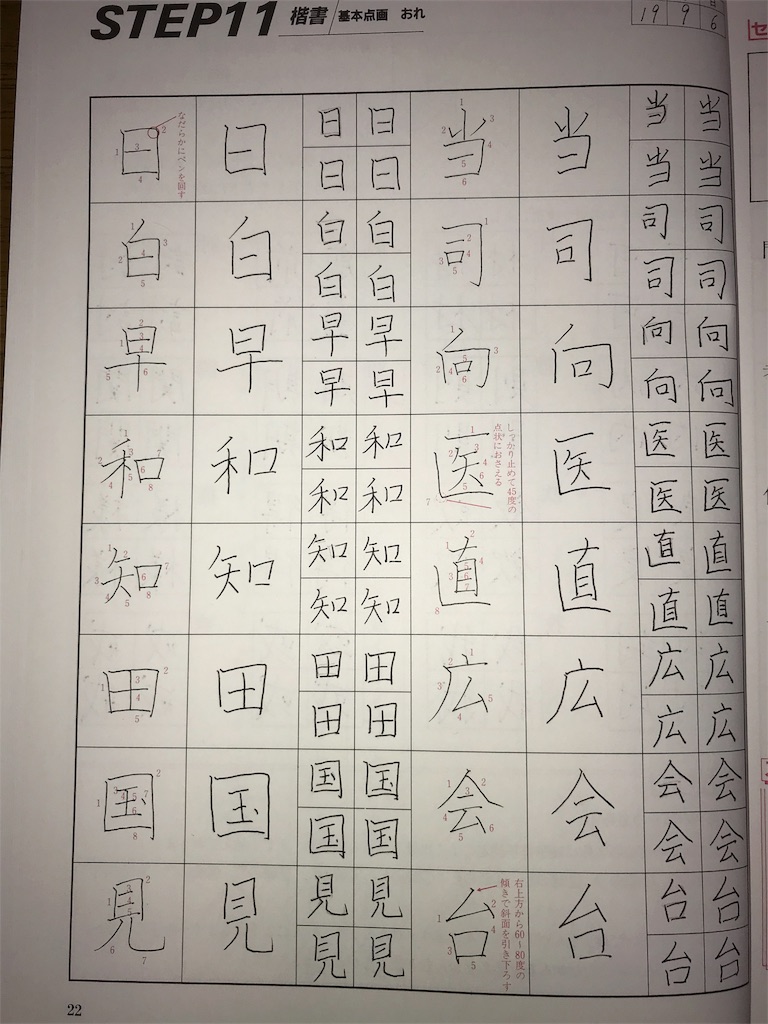 STEP11 楷書 基本点画 おれ
19 9 6
なだらかにペンを回す
日 日 日 日 当 当 当 当
日 日 当 当
白 白 白 白 司 司 司 司
白 白 司 司
早 早 早 早 向 向 向 向
早 早 向 向
しっかり止めて45度の
点状におさえる
和 和 和 和 医 医 医 医
和 和 医 医
知 知 知 知 直 直 直 直
知 知 直 直
田 田 田 田 広 広 広 広
田 田 広 広
国 国 国 国 会 会 会 会
国 国 会 会
右上方から60〜80度の
傾きで斜面を引き下ろす
見 見 見 見 台 台 台 台
見 見 台 台
22